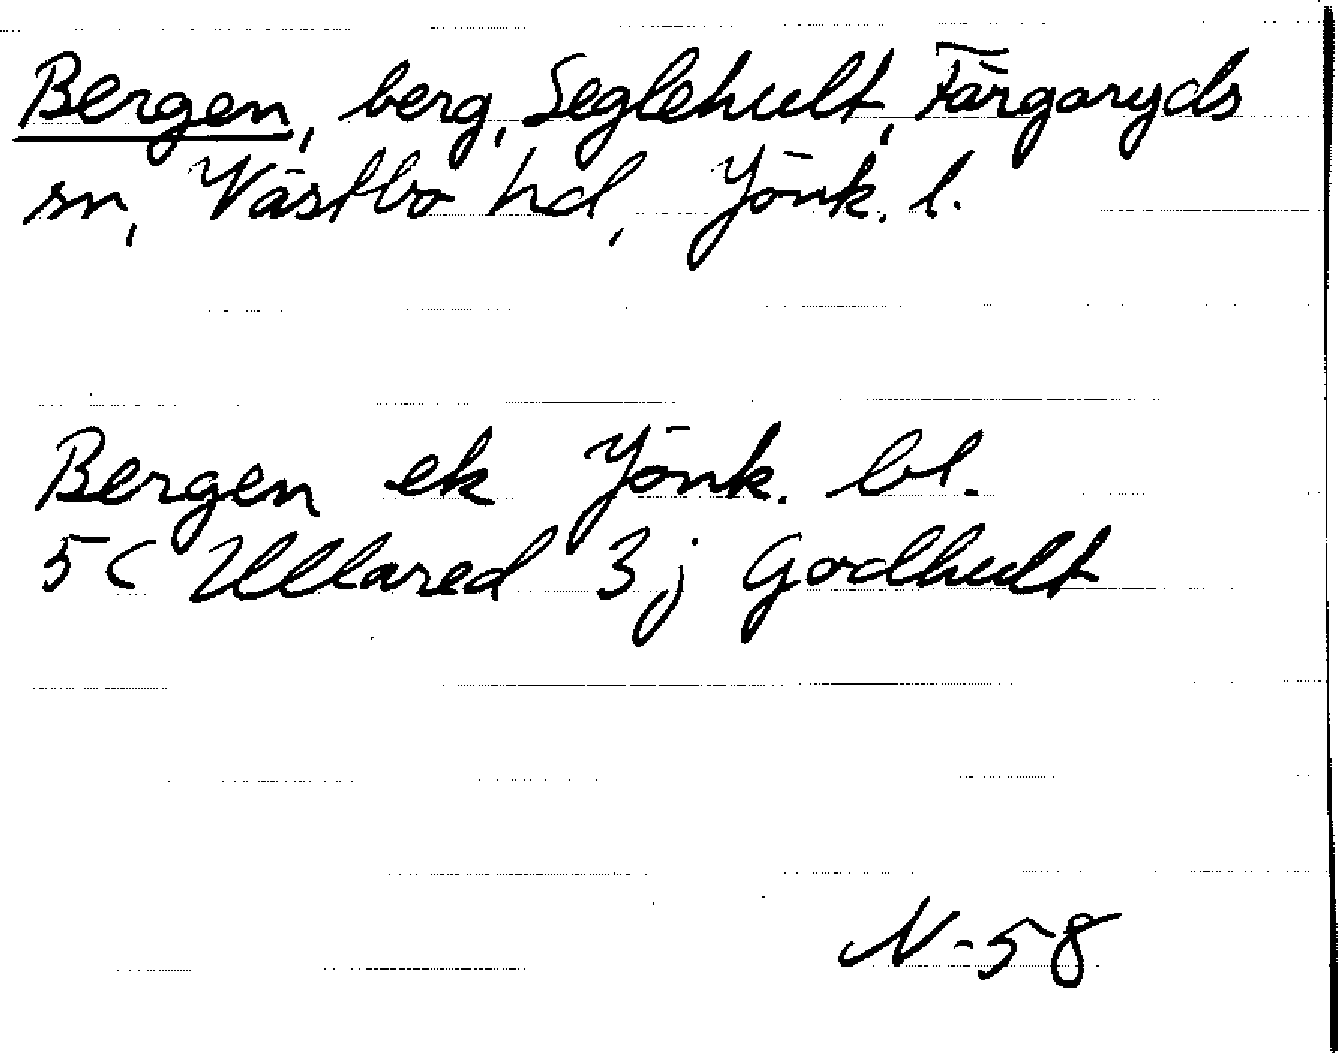 Bergen, berg, Seglehult, Färgaryds
sn, Västbo hd, Jönk. l.
Bergen ek Jönk. bl.
5C Ullared 3j Godhult
N-58